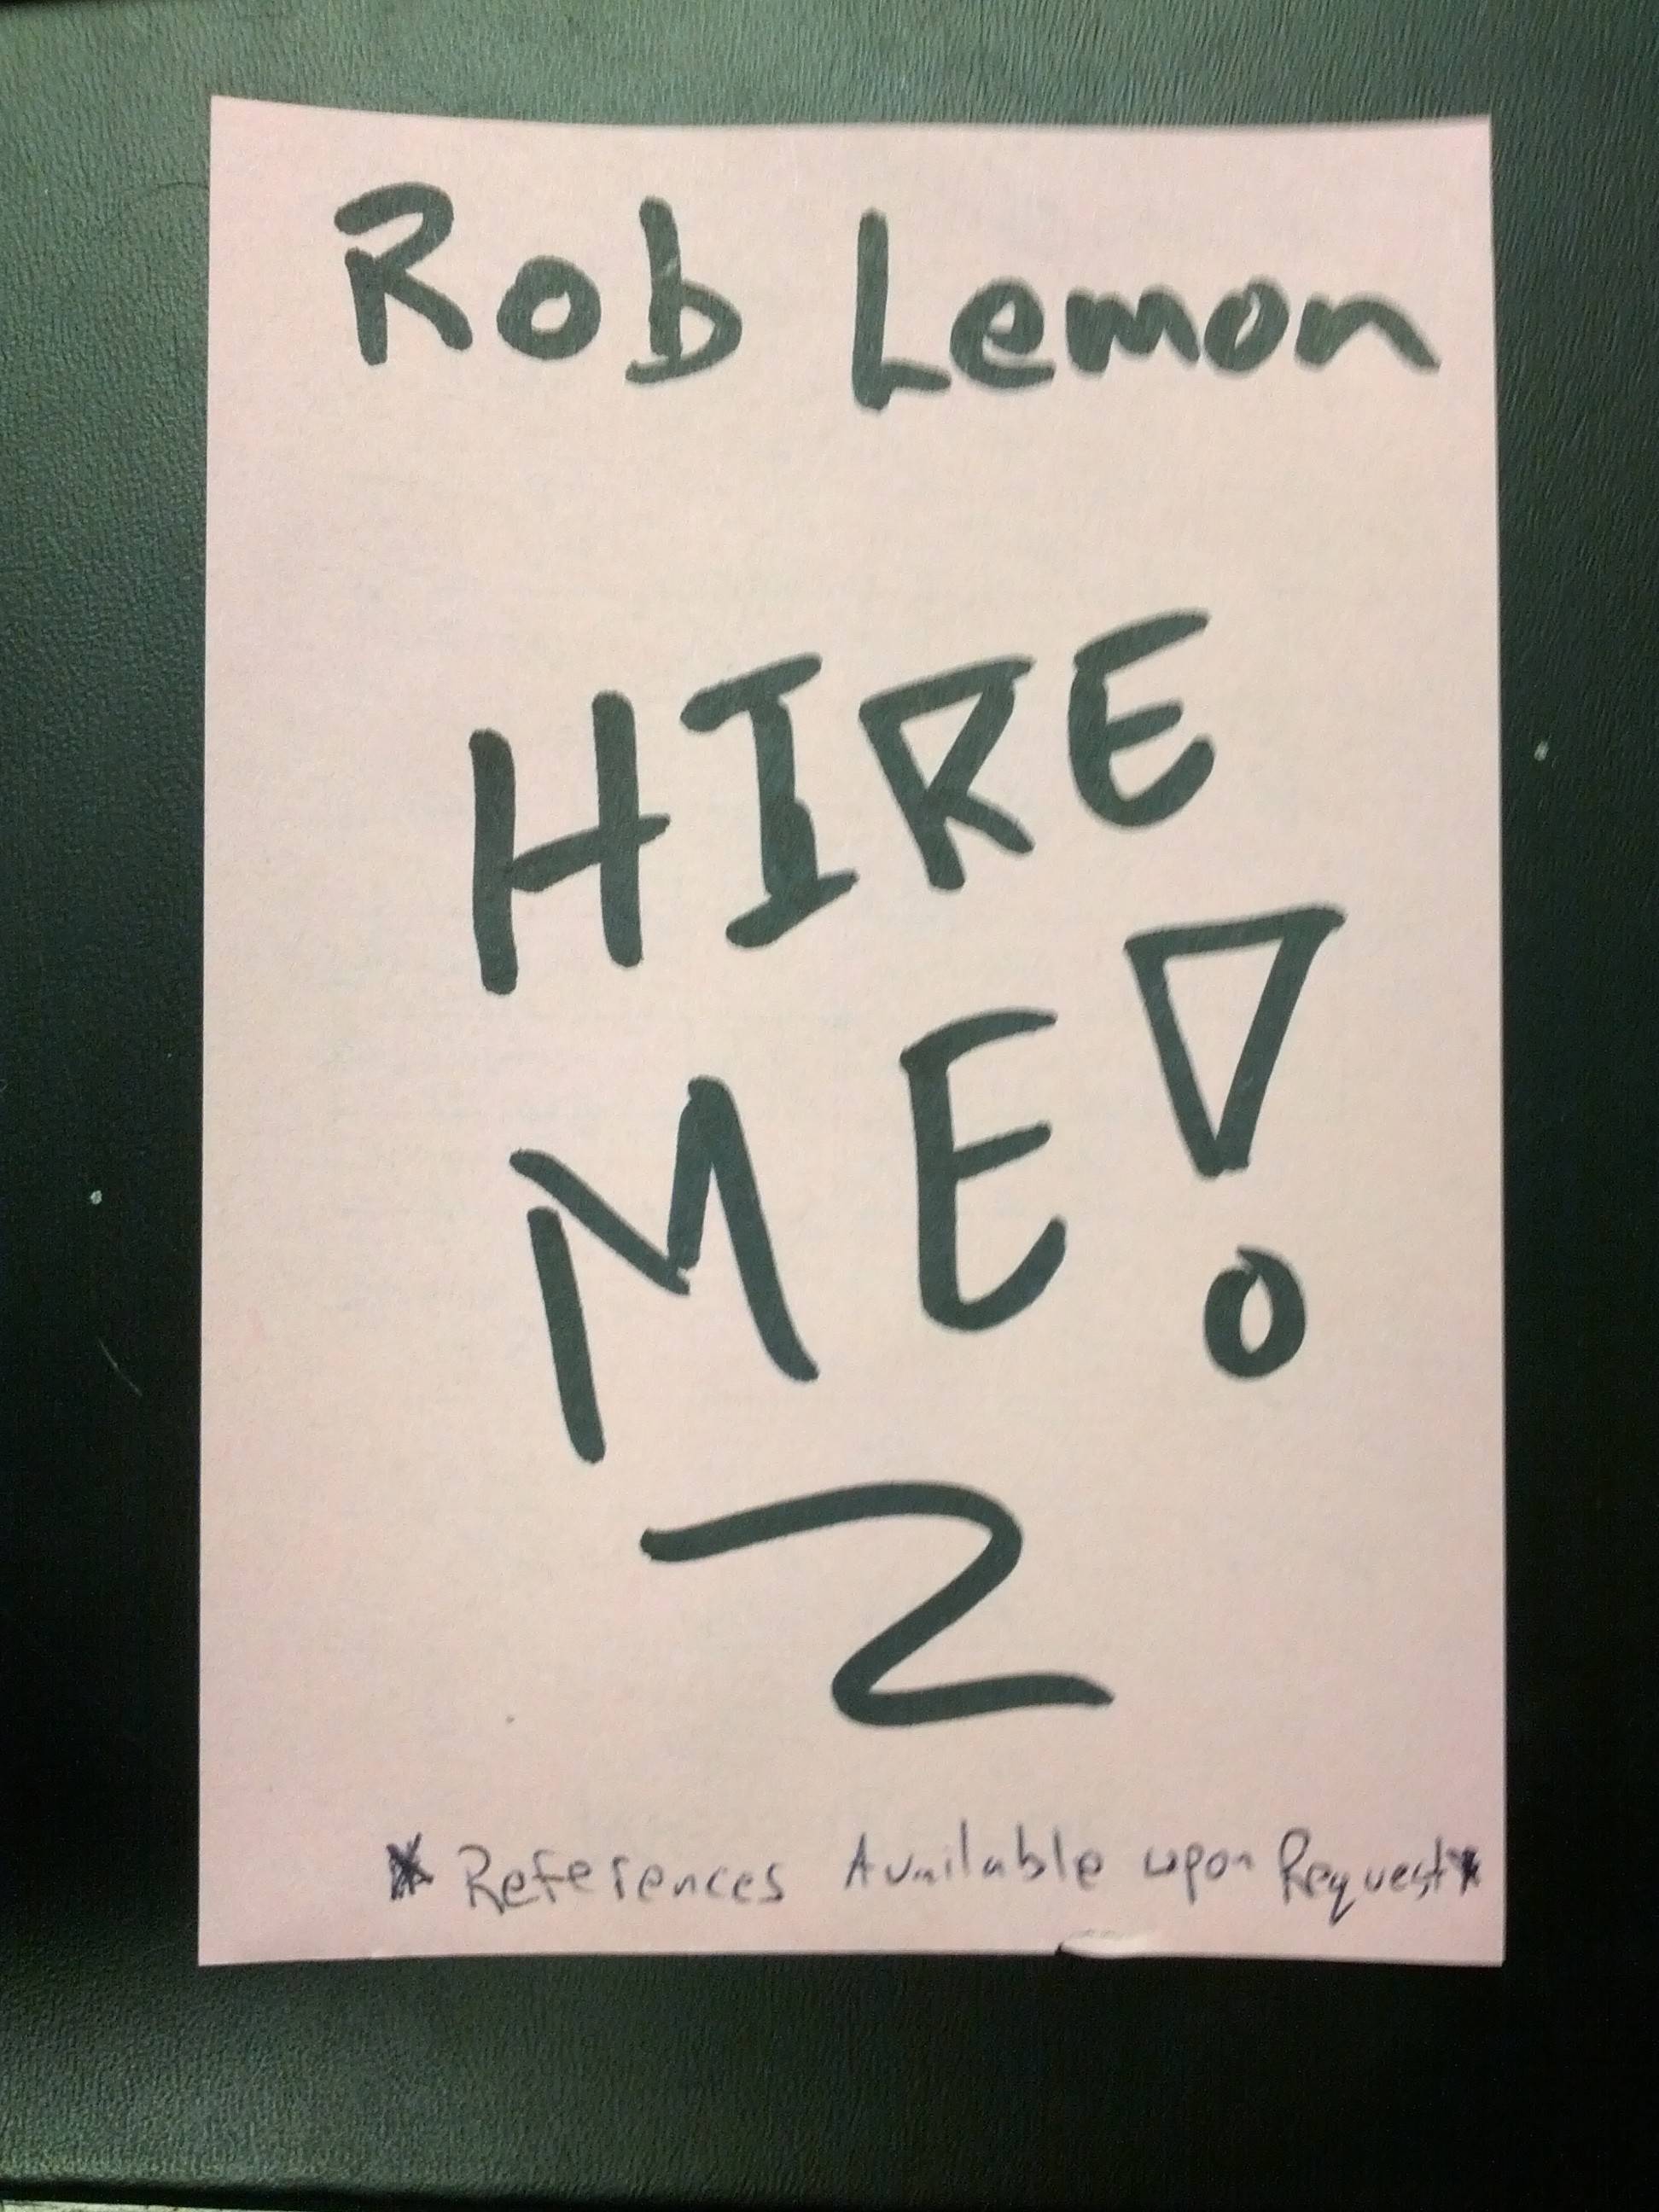 Rob Lemon
HIRE
ME!
* References Available upon Request *